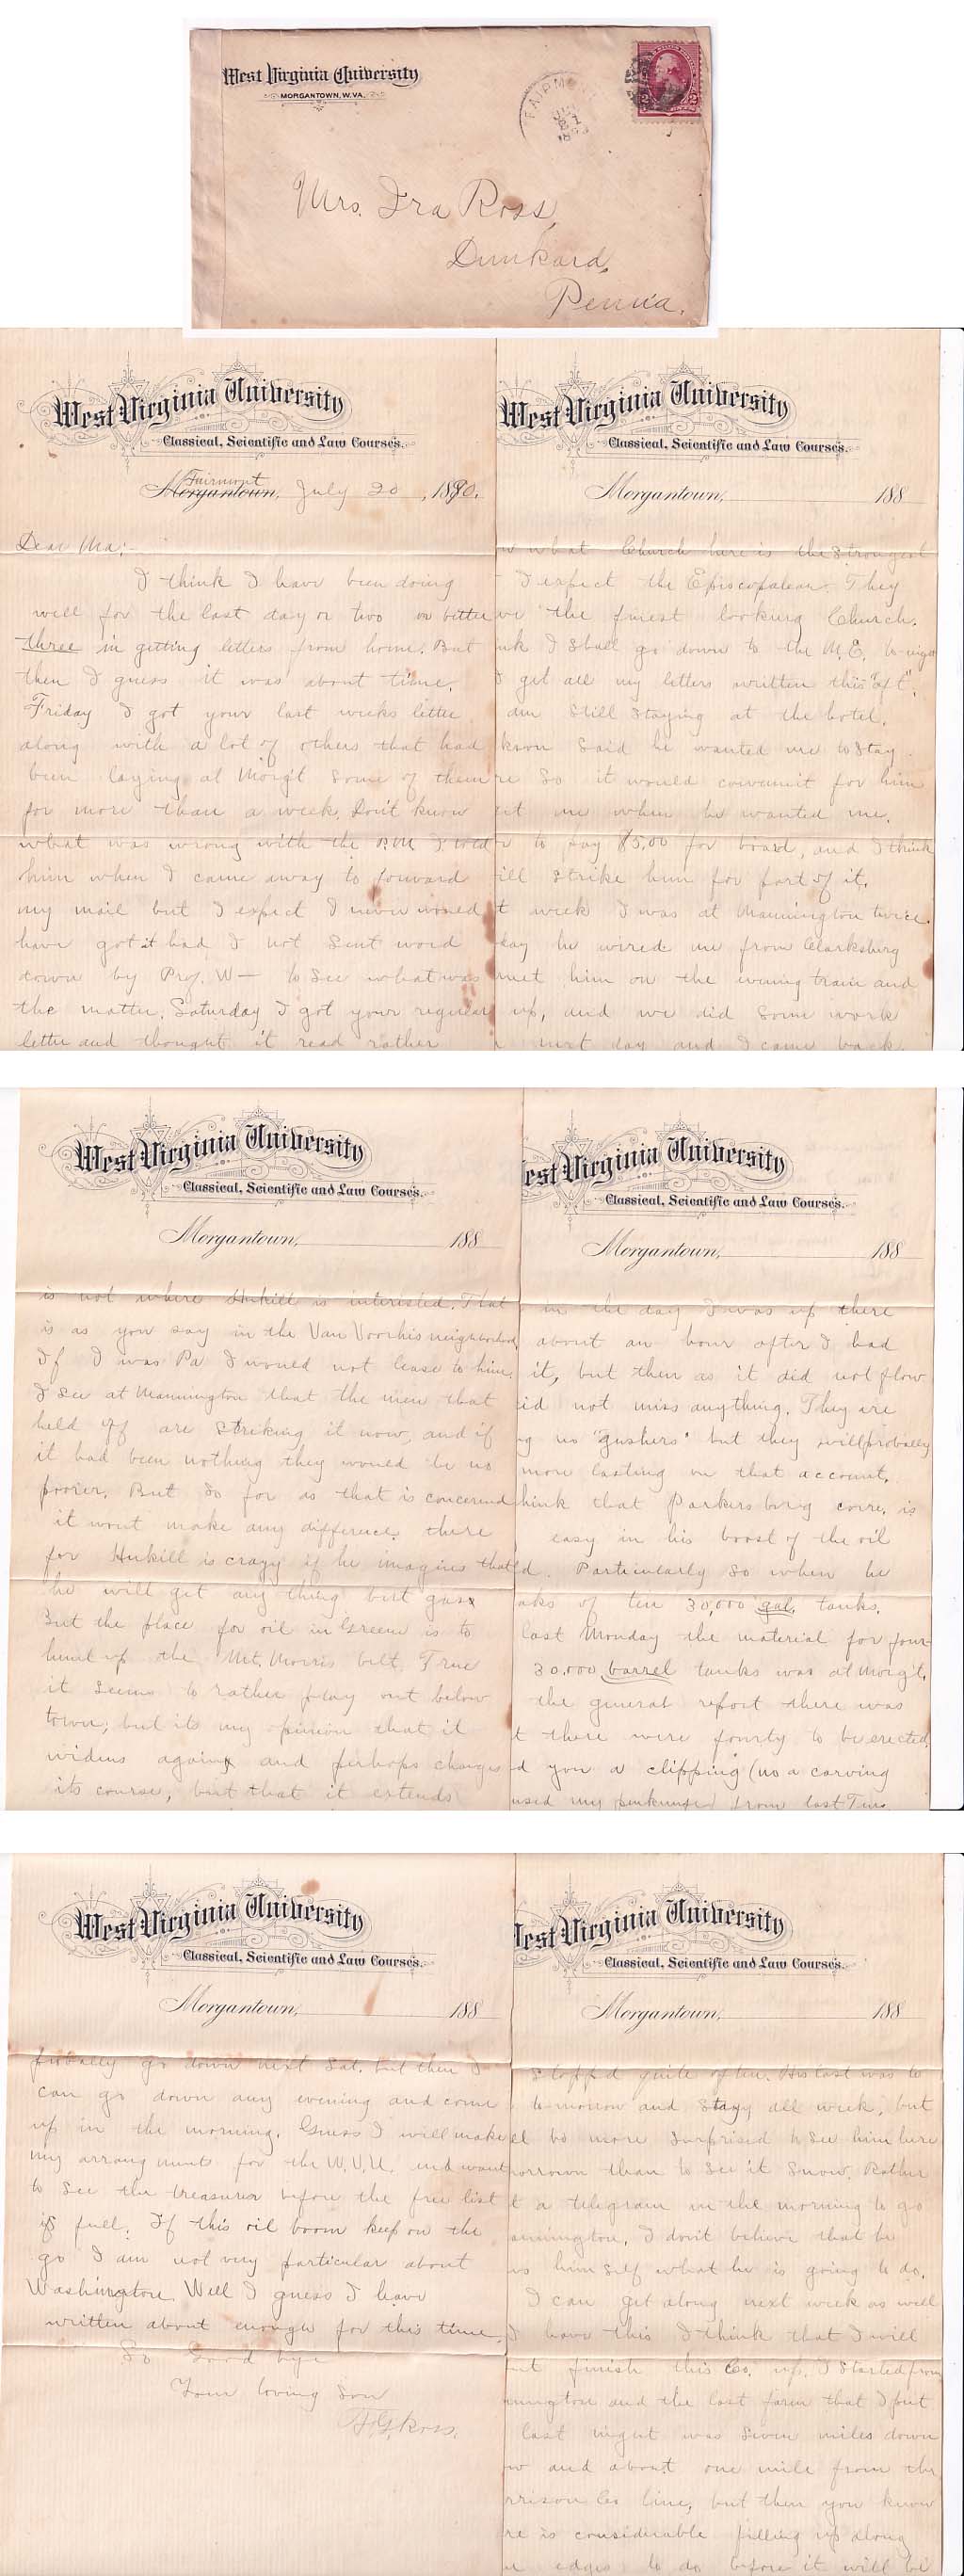 West Virginia University
MORGANTOWN, W. VA.
FAIRMO
Mrs. Ira Ross,
Dunkard,
Penn'a.
West Virginia University
Classical, Scientific and Law Courses.
Fairmont
Morgantown, July 20, 1890.
Dear Ma:-
I think I have been doing
well for the last day or two or better
three in getting letters from home. But
then I guess it was about time.
Friday I got your last weeks letter
along with a lot of others that had
been laying at Morg't some of them
for more than a week. Don't know
what was wrong with the P.M. I told
him when I came away to forward
my mail but I expect I never would
have got it had I not sent word
down by Prof. W— to see what was
the matter. Saturday I got your regular
letter and thought it read rather
West Virginia University
Classical, Scientific and Law Courses.
Morgantown, 188
w what Church here is the strongest
I expect the Episcopalean. They
ve the finest looking Church.
nk I shall go down to the M.E. to-nig
I get all my letters written this "aft".
am still staying at the hotel.
kson said he wanted me to stay
re so it would convenient for him
get me when he wanted me.
to pay $5,00 for board, and I think
ill strike him for part of it.
t week I was at Mannington twice.
day he wired me from Clarksburg
met him on the evening train and
up, and we did some work
next day and I came back.
West Virginia University
Classical, Scientific and Law Courses.
Morgantown, 188
is not where Hukill is interested. That
is as you say in the Van Voorhis neighborhood
If I was Pa I would not lease to him.
I see at Mannington that the men that
held off are striking it now, and if
it had been nothing they would be no
poorer. But so far as that is concerned
it wont make any difference there
for Hukill is crazy if he imagines that
he will get any thing but gas
But the place for oil in Greene is to
hunt up the Mt. Morris belt. True
it seems to rather play out below
town; but its my opinion that it
widens again and perhaps changes
its course, but that it extends
est Virginia University
Classical, Scientific and Law Courses.
Morgantown, 188
in the day I was up there
about an hour after I had
it, but then as it did not flow
id not miss anything. They are
ng no "gushers" but they will probably
more lasting on that account.
hink that Parkersburg corre. is
easy in his boost of the oil
d. Particularly so when he
aks of ten 30,000 gal. tanks.
last Monday the material for four
30.000 barrel tanks was at Morg't.
the general report there was
t there were fourty to be erected.
d you a clipping (no a carving
used my penknife) from last
West Virginia University
Classical, Scientific and Law Courses.
Morgantown, 188
probally go down next Sat. but then I
can go down any evening and come
up in the morning. Guess I will make
my arrangements for the W.V.U. and want
to see the treasurer before the free list
is full. If this oil boom keep on the
go I am not very particular about
Washington. Well I guess I have
written about enough for this time.
So Good bye
Your loving Son
Ross.
est Virginia University
Classical, Scientific and Law Courses.
Morgantown, 188
stopped quite often. His last was to
to-morrow and stay all week, but
ll be more surprised to see him here
orrow than to see it snow. Rather
t a telegram in the morning to go
annington. I don't believe that he
ws himself what he is going to do.
I can get along next week as well
I have this I think that I will
ut finish this Co. up. I started from
nnington and the last farm that I put
last night was seven miles down
w and about one mile from the
rrison Co line, but then you know
re is considerable filling up along
edges to do before it will be